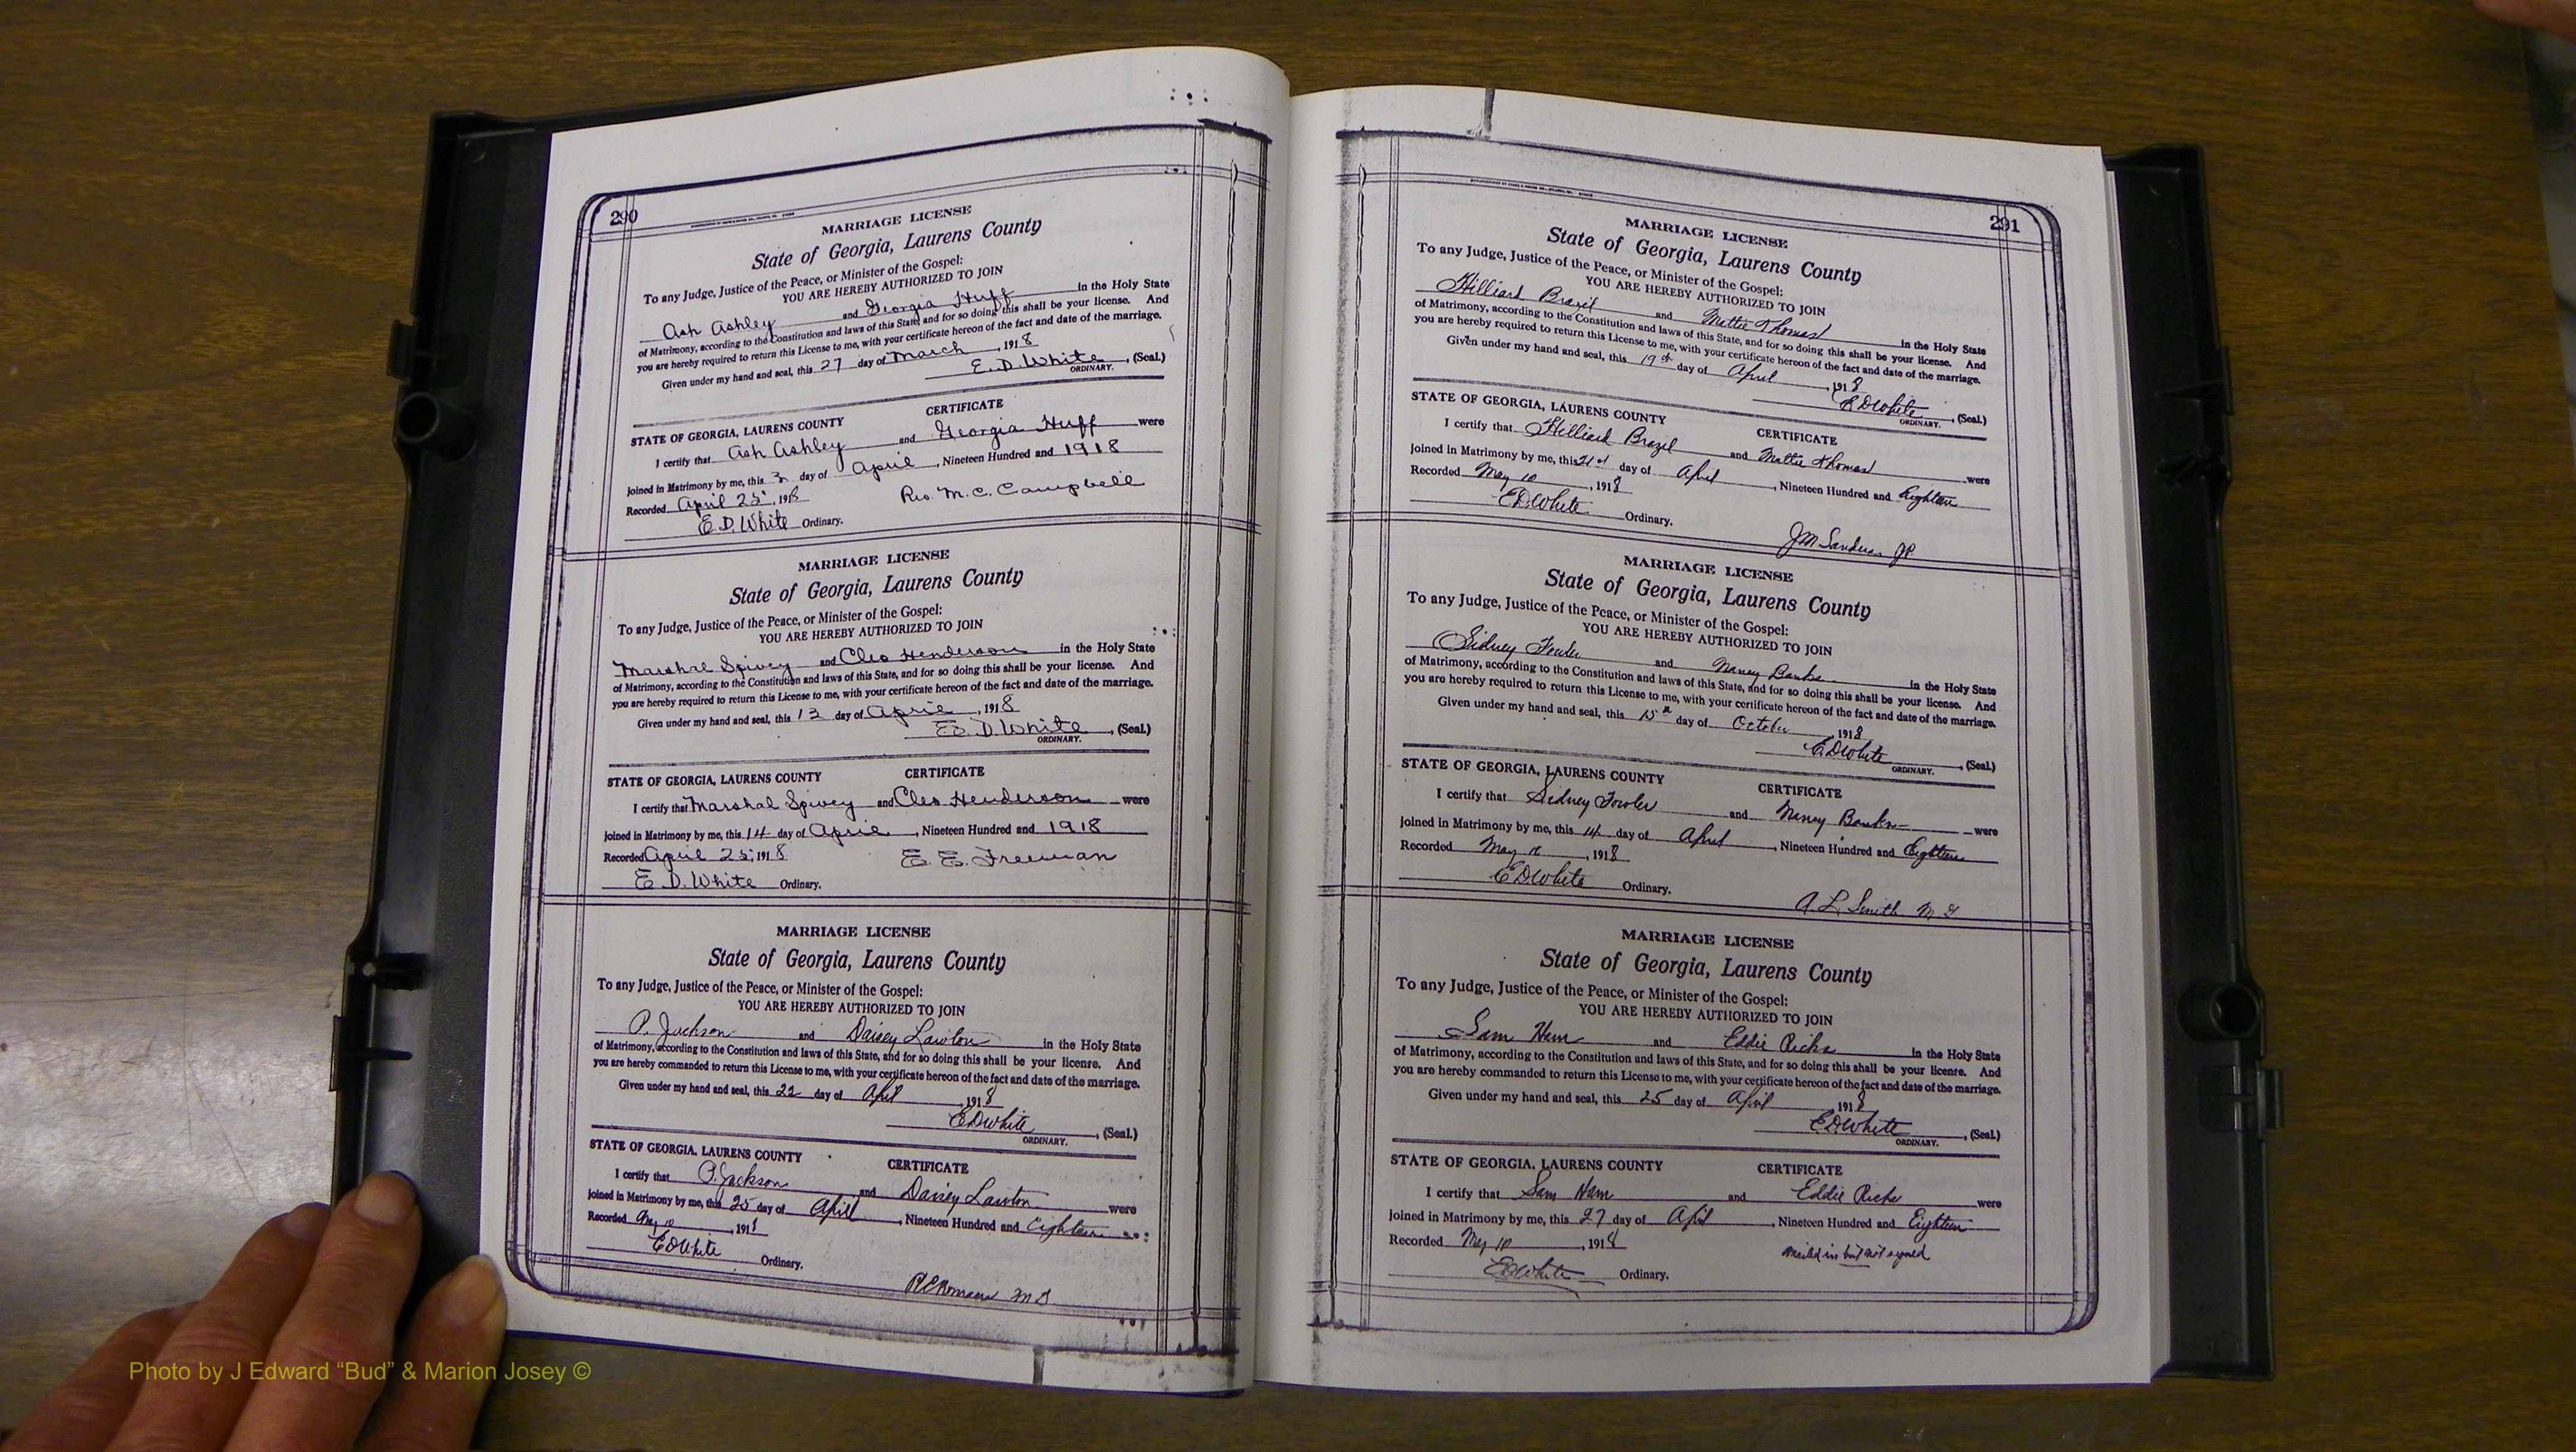 290
MARRIAGE LICENSE
State of Georgia, Laurens County
To any Judge, Justice of the Peace, or Minister of the Gospel:
YOU ARE HEREBY AUTHORIZED TO JOIN
Ash Ashley and Georgia Huff in the Holy State
of Matrimony, according to the Constitution and laws of this State, and for so doing this shall be your license. And
you are hereby required to return this License to me, with your certificate hereon of the fact and date of the marriage.
Given under my hand and seal, this 27 day of March, 1918
E. D. White, (Seal.)
ORDINARY.
CERTIFICATE
STATE OF GEORGIA, LAURENS COUNTY
I certify that Ash Ashley and Georgia Huff were
joined in Matrimony by me, this 3 day of April, Nineteen Hundred and 1918
Recorded April 25, 1918
Rev. M. C. Campbell
E. D. White Ordinary.
MARRIAGE LICENSE
State of Georgia, Laurens County
To any Judge, Justice of the Peace, or Minister of the Gospel:
YOU ARE HEREBY AUTHORIZED TO JOIN
Marshal Spivey and Cleo Henderson in the Holy State
of Matrimony, according to the Constitution and laws of this State, and for so doing this shall be your license. And
you are hereby required to return this License to me, with your certificate hereon of the fact and date of the marriage.
Given under my hand and seal, this 13 day of April, 1918
E. D. White, (Seal.)
ORDINARY.
STATE OF GEORGIA, LAURENS COUNTY CERTIFICATE
I certify that Marshal Spivey and Cleo Henderson were
joined in Matrimony by me, this 14 day of April, Nineteen Hundred and 1918
Recorded April 25, 1918 E. E. Freeman
E. D. White Ordinary.
MARRIAGE LICENSE
State of Georgia, Laurens County
To any Judge, Justice of the Peace, or Minister of the Gospel:
YOU ARE HEREBY AUTHORIZED TO JOIN
P. Jackson and Daisey Lawton in the Holy State
of Matrimony, according to the Constitution and laws of this State, and for so doing this shall be your license. And
you are hereby commanded to return this License to me, with your certificate hereon of the fact and date of the marriage.
Given under my hand and seal, this 22 day of April, 1918
E D White, (Seal.)
ORDINARY.
STATE OF GEORGIA, LAURENS COUNTY CERTIFICATE
I certify that P. Jackson and Daisey Lawton were
joined in Matrimony by me, this 25 day of April, Nineteen Hundred and Eighteen
Recorded May 10, 1918
E D White Ordinary.
291
MARRIAGE LICENSE
State of Georgia, Laurens County
To any Judge, Justice of the Peace, or Minister of the Gospel:
YOU ARE HEREBY AUTHORIZED TO JOIN
Hilliard Brazil and Mattie Thomas in the Holy State
of Matrimony, according to the Constitution and laws of this State, and for so doing this shall be your license. And
you are hereby required to return this License to me, with your certificate hereon of the fact and date of the marriage.
Given under my hand and seal, this 19th day of April, 1918
E D White, (Seal.)
ORDINARY.
STATE OF GEORGIA, LAURENS COUNTY CERTIFICATE
I certify that Hilliard Brazel and Mattie Thomas were
joined in Matrimony by me, this 21st day of April, Nineteen Hundred and Eighteen
Recorded May 10, 1918
E D White Ordinary.
J M Sanders JP
MARRIAGE LICENSE
State of Georgia, Laurens County
To any Judge, Justice of the Peace, or Minister of the Gospel:
YOU ARE HEREBY AUTHORIZED TO JOIN
Sidney Fowler and Nancy Banks in the Holy State
of Matrimony, according to the Constitution and laws of this State, and for so doing this shall be your license. And
you are hereby required to return this License to me, with your certificate hereon of the fact and date of the marriage.
Given under my hand and seal, this 15th day of October, 1918
E D White, (Seal.)
ORDINARY.
STATE OF GEORGIA, LAURENS COUNTY CERTIFICATE
I certify that Sidney Fowler and Nancy Banks were
joined in Matrimony by me, this 14 day of April, Nineteen Hundred and Eighteen
Recorded May 10, 1918
E D White Ordinary.
A. L. Smith M G
MARRIAGE LICENSE
State of Georgia, Laurens County
To any Judge, Justice of the Peace, or Minister of the Gospel:
YOU ARE HEREBY AUTHORIZED TO JOIN
Sam Ham and Eddie Ricks in the Holy State
of Matrimony, according to the Constitution and laws of this State, and for so doing this shall be your license. And
you are hereby commanded to return this License to me, with your certificate hereon of the fact and date of the marriage.
Given under my hand and seal, this 25 day of April, 1918
E D White, (Seal.)
ORDINARY.
STATE OF GEORGIA, LAURENS COUNTY CERTIFICATE
I certify that Sam Ham and Eddie Ricks were
joined in Matrimony by me, this 27 day of April, Nineteen Hundred and Eighteen
Recorded May 10, 1918 mailed in but not signed
E D White Ordinary.
Photo by J Edward “Bud” & Marion Josey ©